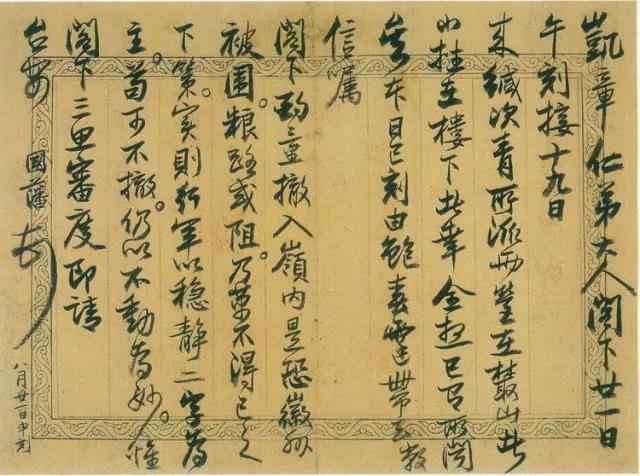 凱章仁弟大人閣下廿一日
午刻接十九日
來緘次青所派兩營在叢山
小挂在樓下此幸全 已有所聞
矣本日巳刻由鮑春霆帶去數
信囑
閣下酌量撤入嶺內是恐徽州
被圍粮路或阻乃萬不得已之
下策實則行軍以穩靜二字為
主苟可不撤仍以不動為妙惟
閣下三思審度即請
台安 國藩
八月廿一日申